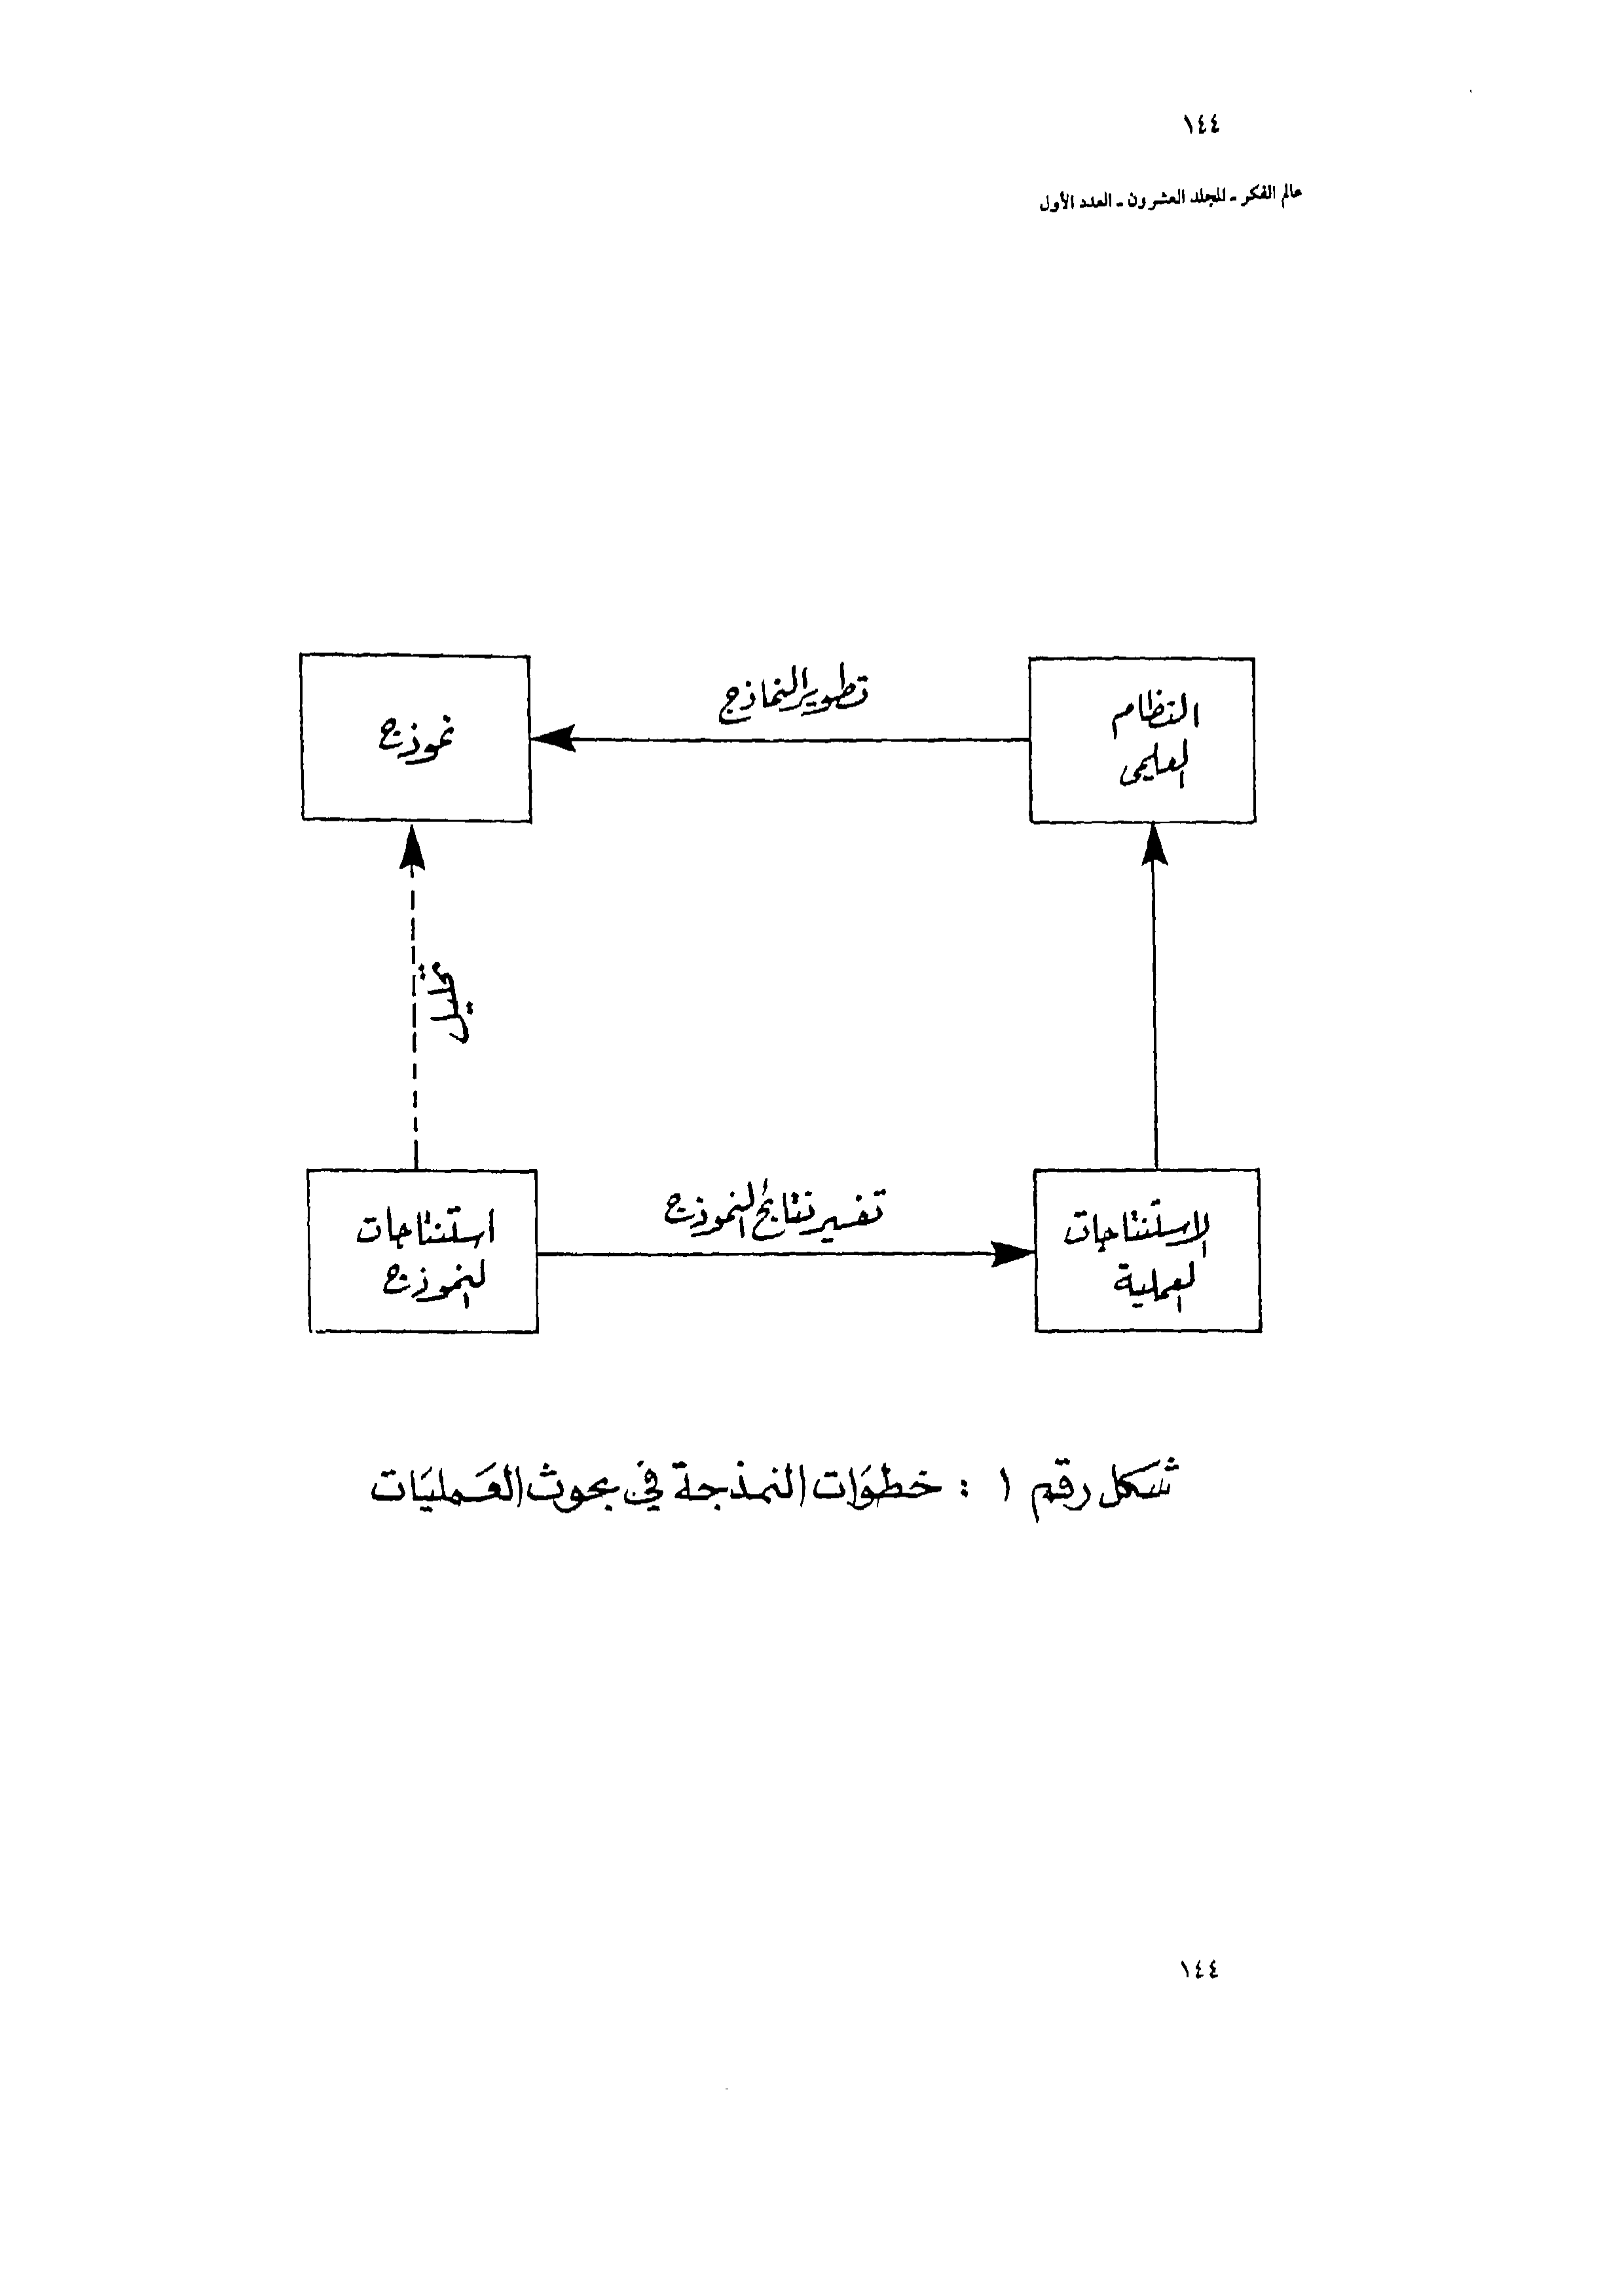 ١٤٤
عالم الفكر - المجلد العشرون - العدد الأول
النظام
العلیمی
تطوير النماذج
نموذج
تحليل
الاستنتاجات
العملية
تفسير نتائج النموذج
استنتاجات
النموذج
شكل رقم ١ : خطوَات النمذجة في بحوث العَمليَات
١٤٤